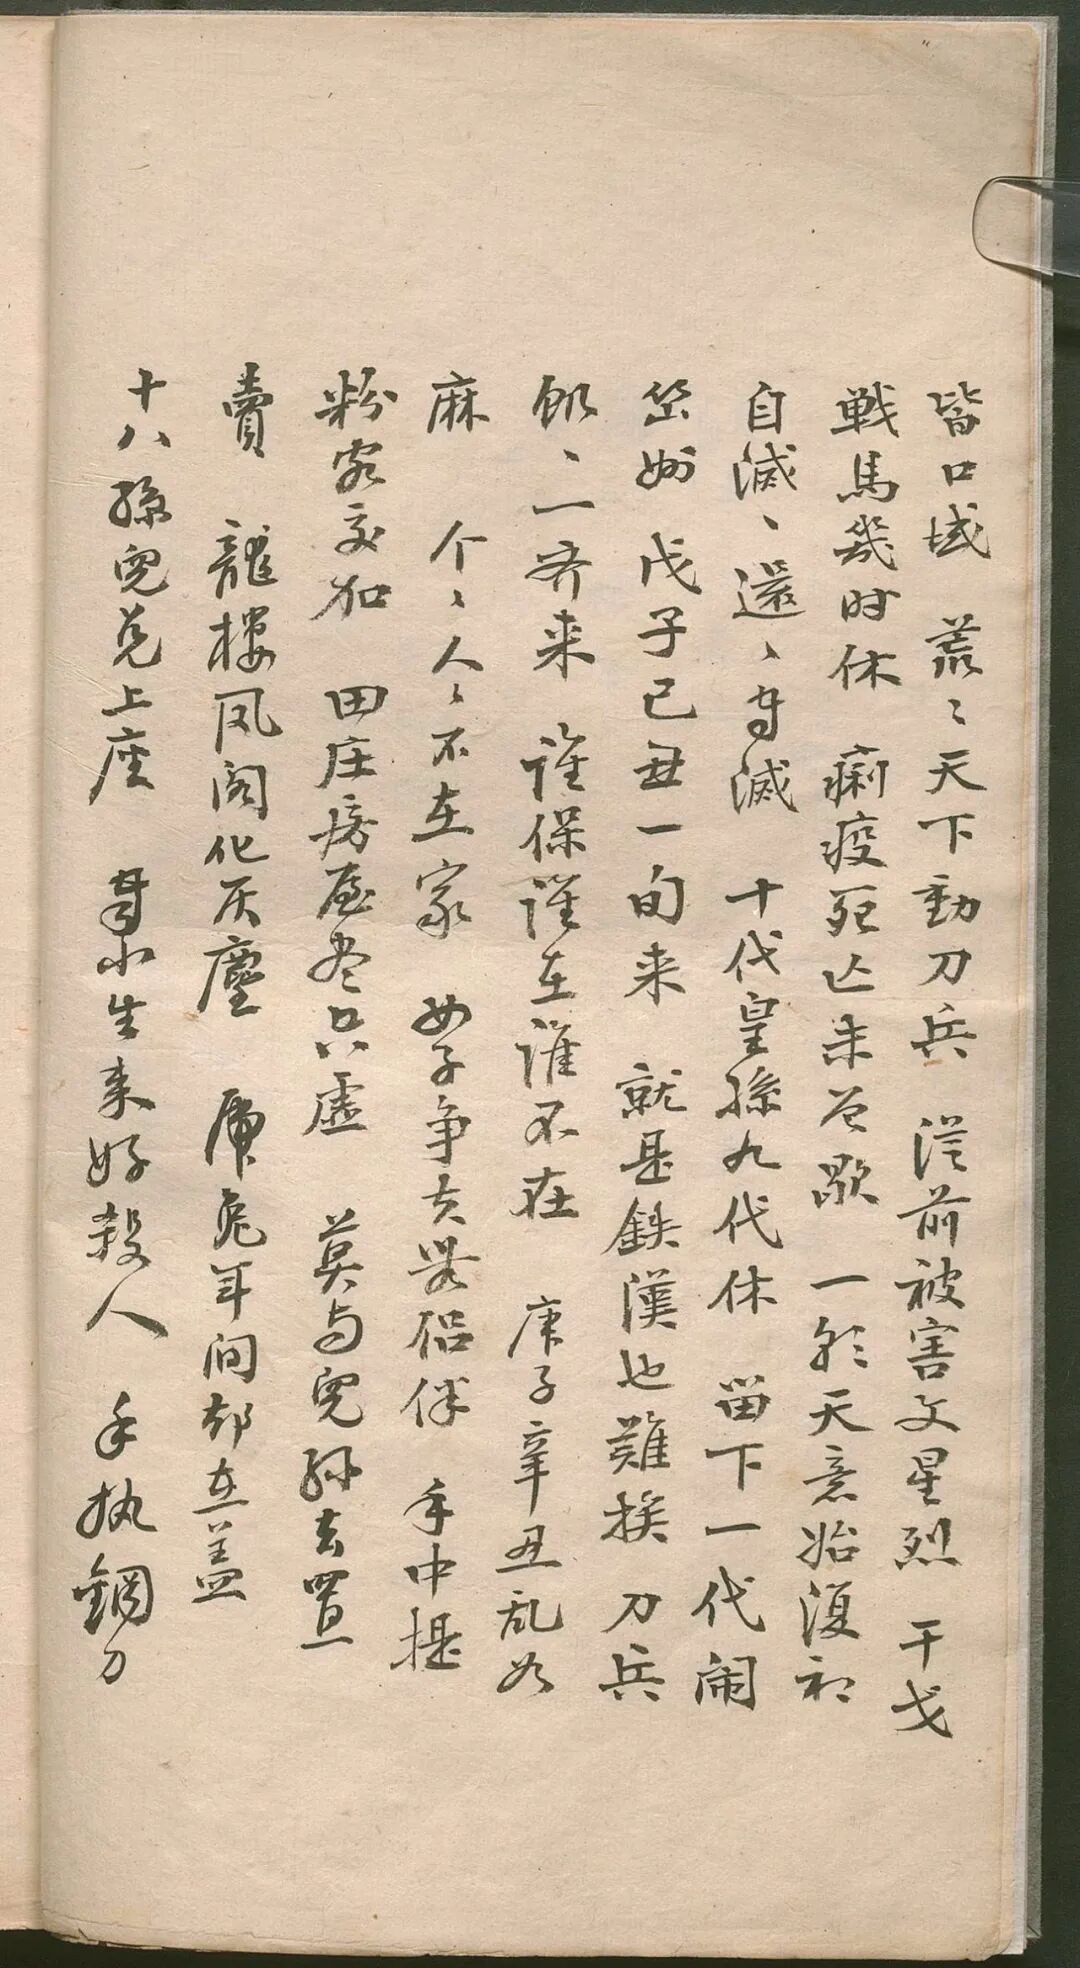 皆口域 荒〻天下動刀兵 從前被害文星烈 干戈
戦馬幾时休 痢疫死亡未曾歇 一形天意始復初
自滅、還、自滅 十代皇孫九代休 留下一代闹
戊子己丑一旬来 就是鉄漢也難挨 刀兵
飢、一齐来 誰保誰在誰不在 庚子辛丑乱如
麻 个〻人〻不在家 女子争夫罢侣伴 手中提
粉客交加 田庄房屋尽只虛 莫与兒孙去置
賣 龍樓凤阁化灰塵 虎兔年间却在盖
十八孫兒兑上座 小生来好殺人 手执鋼刀